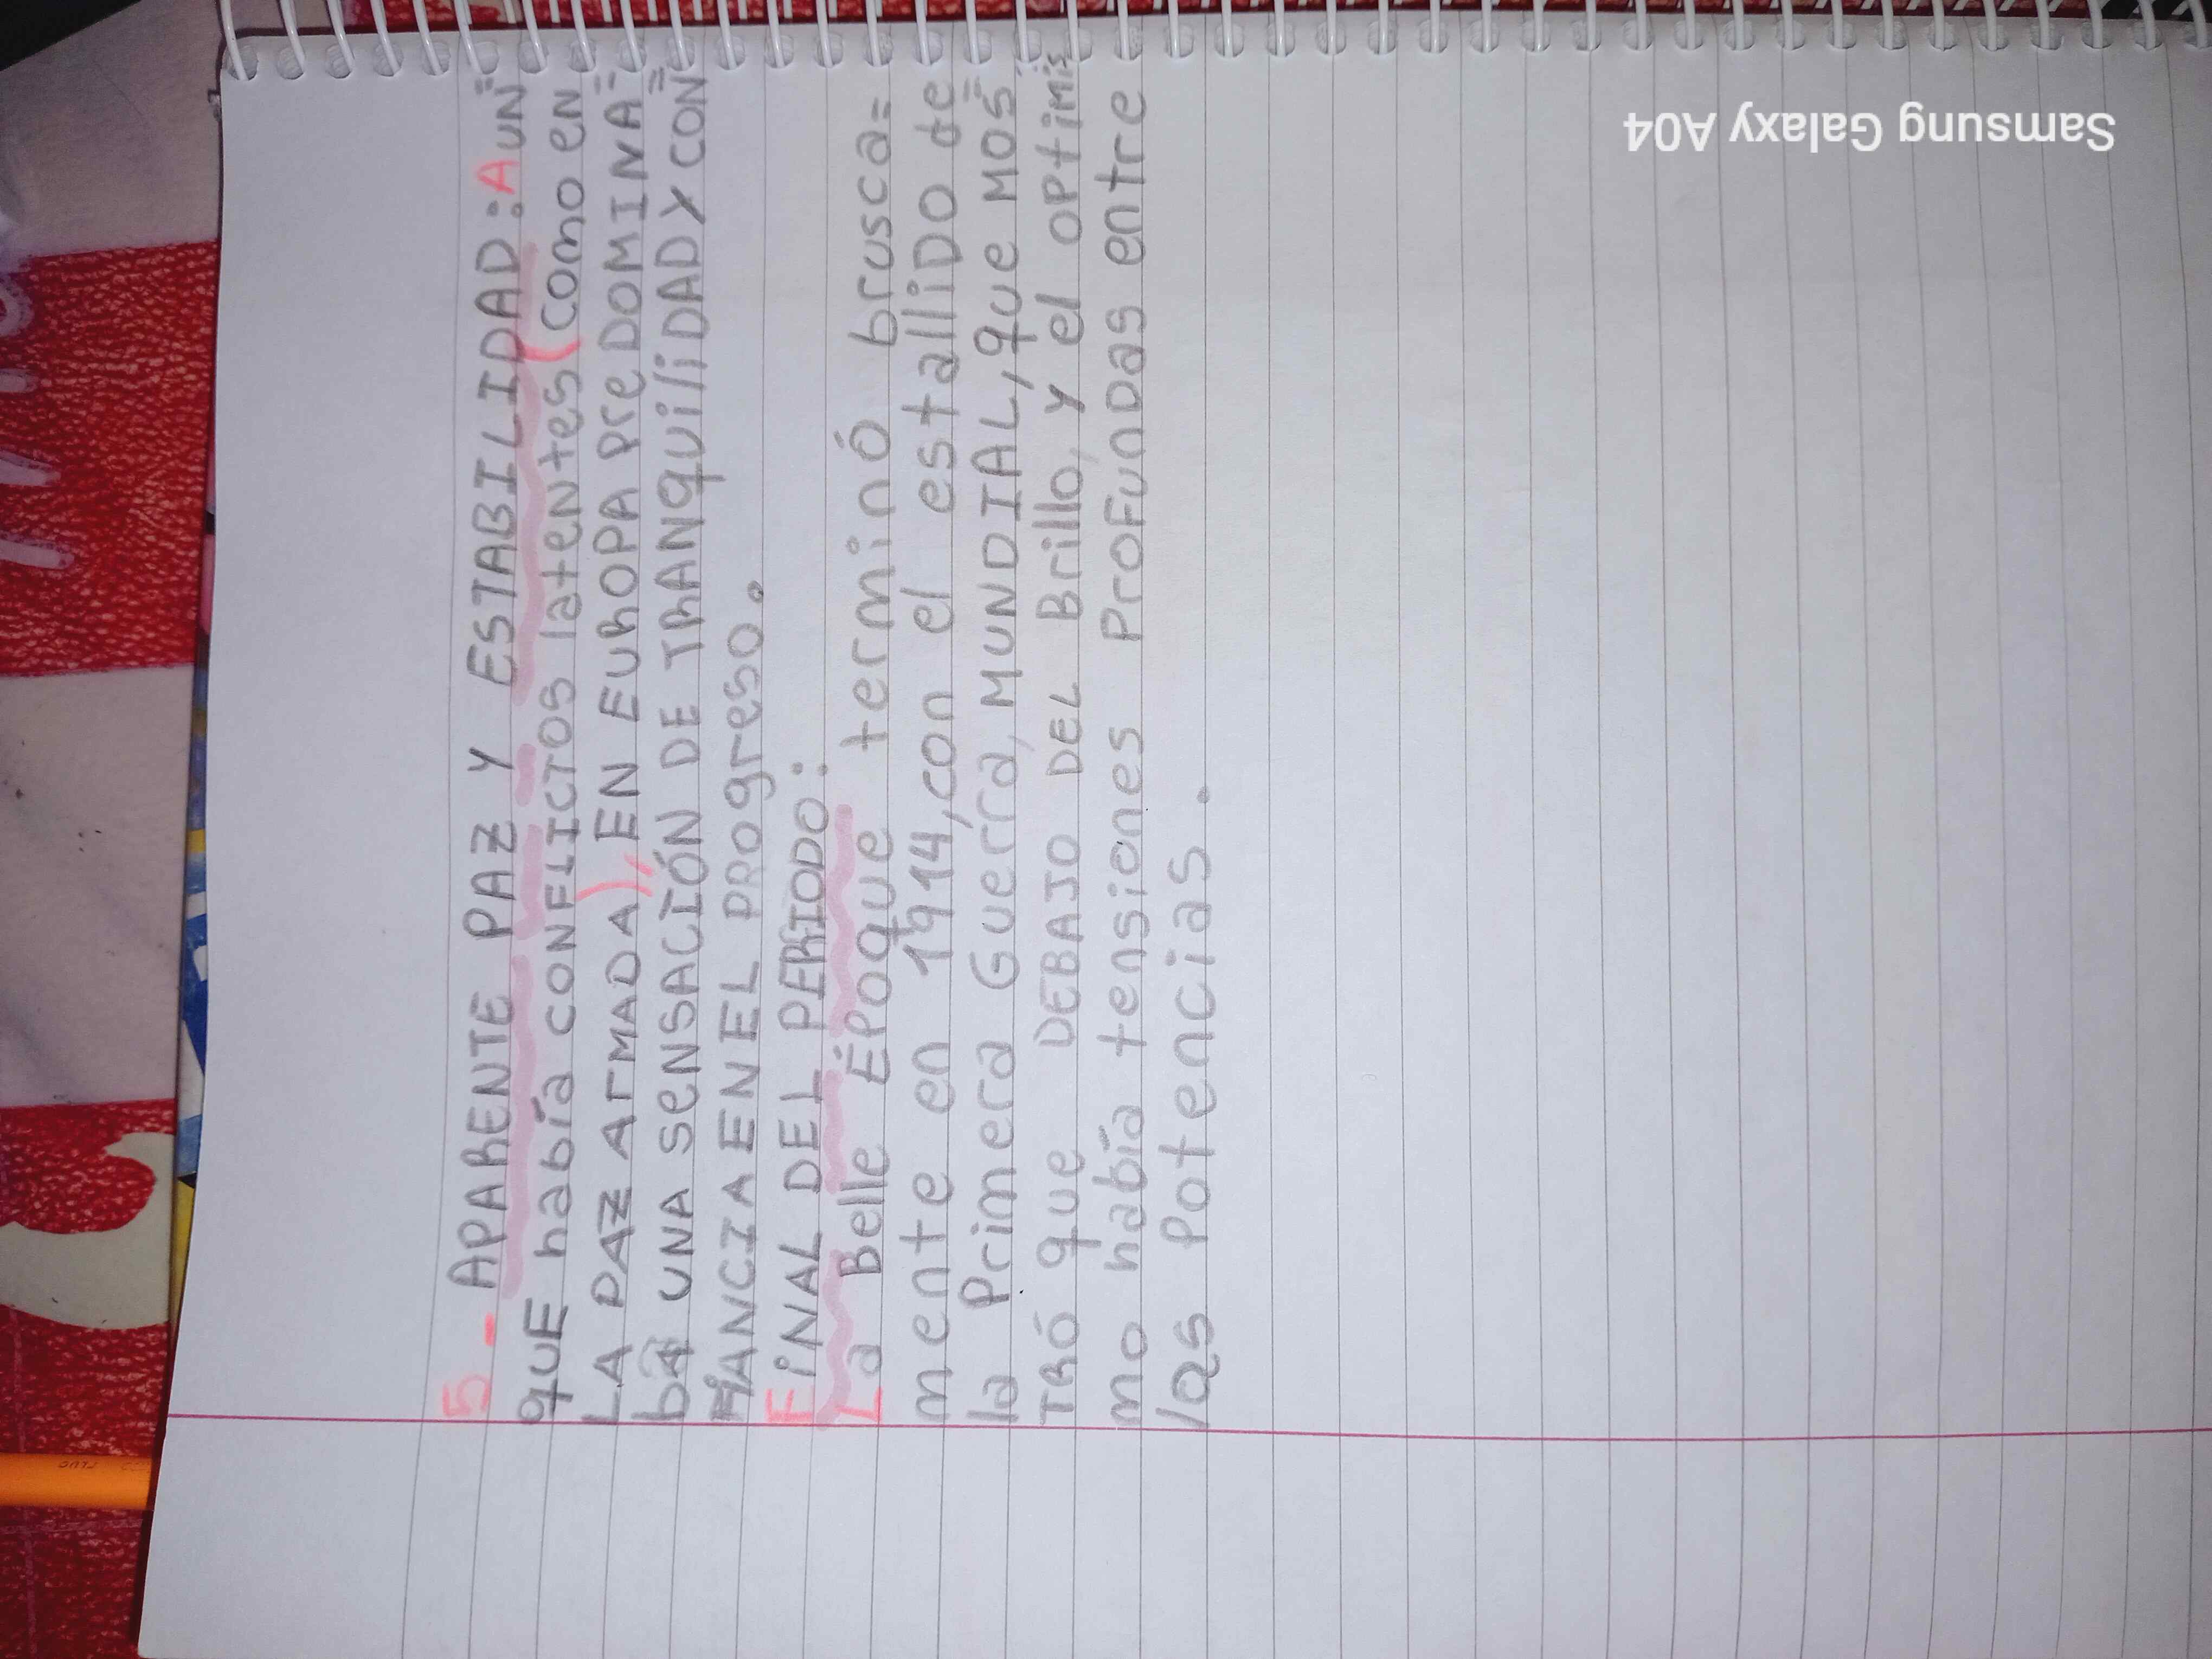 5- APARENTE PAZ Y ESTABILIDAD: AUN=
QUE había CONFLICTOS latentes (como en
LA PAZ ArMADA), EN EUROPA Pre DOMINA=
ba UNA SENSACIÓN DE TRANQUILIDAD Y CON=
FIANCIA EN EL PROgreso.
FINAL DEL PERIODO:
La Belle Époque terminó brusca=
mente en 1914, con el estallido de
la Primera Guerra, MUNDIAL, que MOS=
TRÓ que DEBAJO DEL Brillo, y el OPtiMis=
mo había tensiones ProFunDas entre
las Potencias.
Samsung Galaxy A04